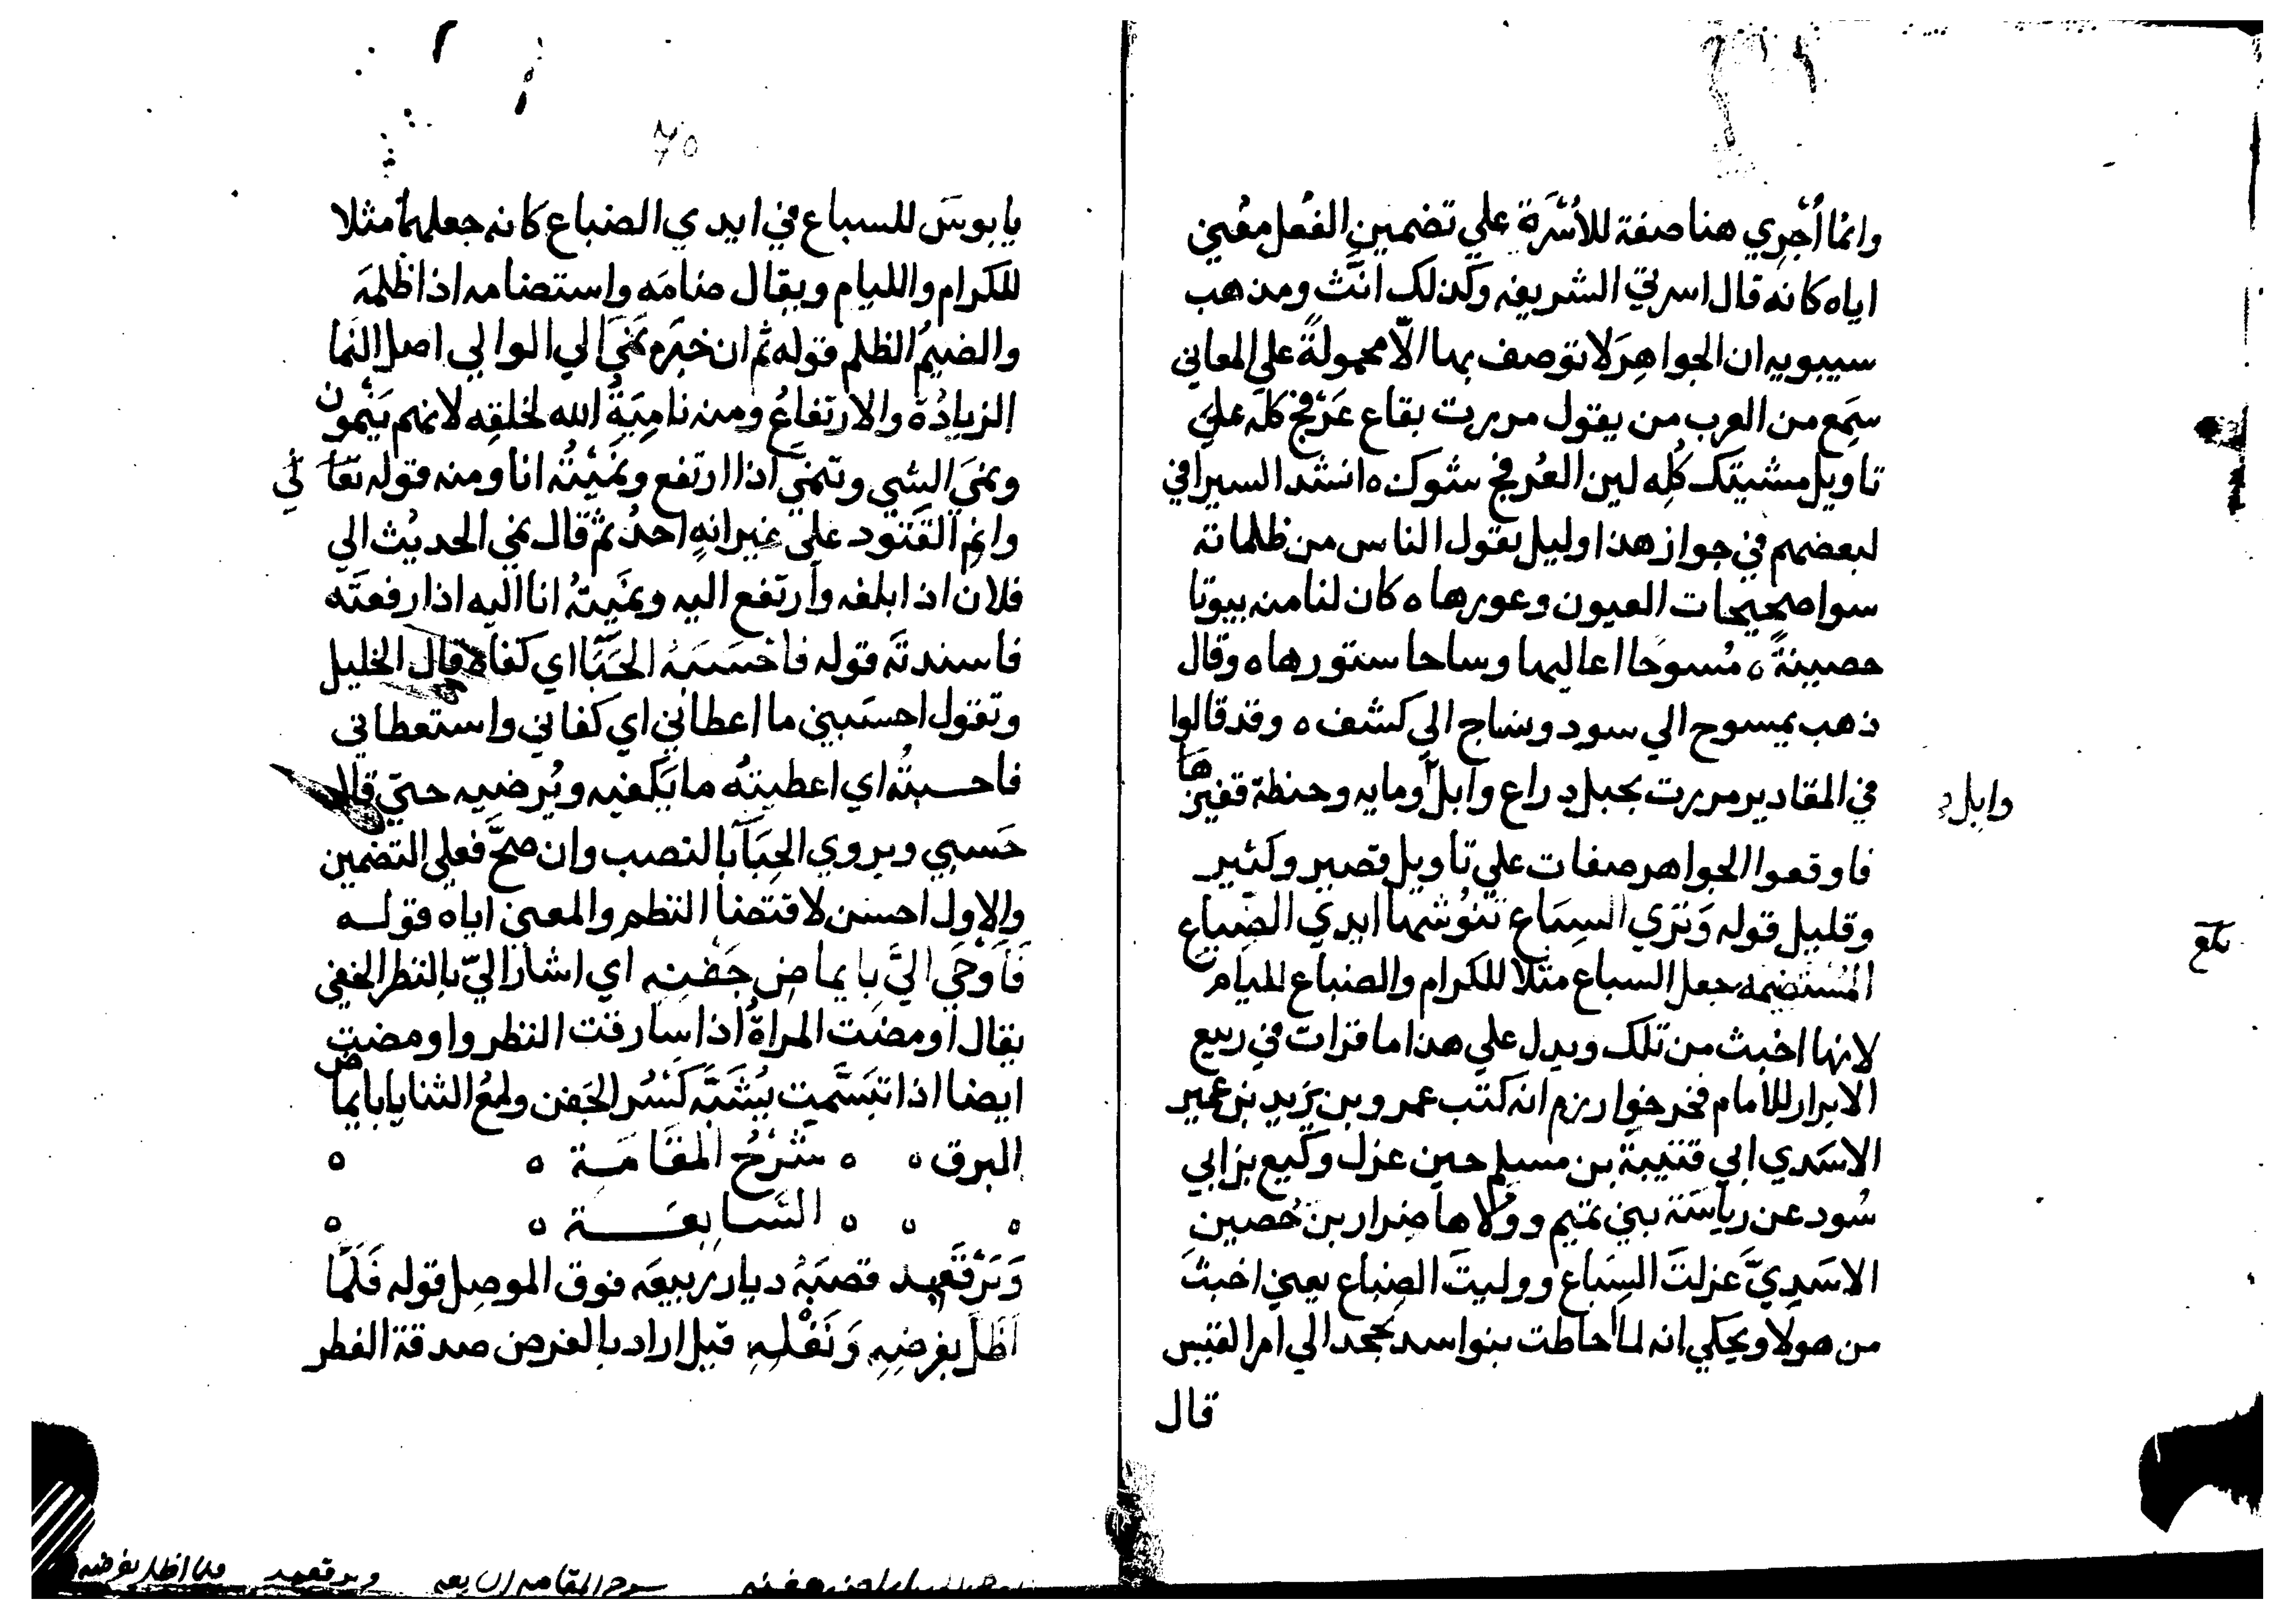 وانما أجري هنا صفة للأسرة علي تضمين الفعل معني
اياه كانه قال اسرتي الشريفه وكذلك انث ومذهب
سيبويه ان الجواهر لا توصف بها الّا محمولةً علي المعاني
سمع من العرب من يقول مررت بقاع عرفج كله علي
تاويل مشيتك كله لين العرفج شوك ه انشد السيرافي
لبعضهم في جواز هذا وليل يقول الناس من ظلماته
سوا صحيحات العيون وعورها ه كان لنا منه بيوتا
حصينةً ه مسوحا اعاليها وساحا ستورها ه وقال
ذهب بمسوح الي سود وساج الي كشف ه وقد قالوا
في المقادير مررت بحبل دراع وابل ومايه وحنطة قفيزها
وابل
فاوقعوا الجواهر صفات علي تاويل قصير وكثير
وقليل قوله وتري السباع تنوشها ايدي الضباع
المستضمه جعل السباع مثلا للكرام والضباع لليام
لانها اخبث من تلك ويدل علي هذا ما قرات في ربيع
الابرار للامام فخر خوارزم انه كتب عمرو بن يزيد بن عمير
الاسدي الي قتيبة بن مسلم حين عزل وكيع بن ابي
سود عن رياسة بني تميم وولاها ضرار بن حصين
الاسديّ عزلت السباع ووليت الضباع يعني اخبث
من هولا ويحكي انه لما احاطت بنوا اسد بحجد الي امر القيس
قال
يا بوس للسباع في ايدي الضباع كانه جعلهما مثلا
للكرام والليام ويقال ضامه واستضامه اذا ظلمه
والضيم الظلم قوله ثم ان خبره نمي الي الوالي اصل النما
الزيادة والارتفاع ومنه نامية الله لخلقه لانهم ينمون
ونمي الشي وتنمي اذا ارتفع ونميته انا ومنه قوله تعالي
وانم القتود علي عيرانه احد ثم قال نمي الحديث الي
فلان اذا بلغه وارتفع اليه ونميته انا اليه اذا رفعته
فاسندته قوله فاحسبه الحبا اي كفاه قال الخليل
وتقول احسبني ما اعطاني اي كفاني واستعطاني
فاحسبته اي اعطيته ما يكفيه ويرضيه حتي قال
حسبي ويروي الحبا بالنصب وان صح فعلي التضمين
والاول احسن لاقتضا النظم والمعني اياه قوله
فاوحي اليّ بايماض جفنه اي اشار اليّ بالنظر الخفي
يقال اومضت المراة اذا سارقت النظر واومضت
ايضا اذا تبسمت يشبه كسر الجفن ولمع الثنايا بايماض
البرق ه ه شرح المقامة ه ه
ه ه ه السابعة ه ه
وبرقعيد قصبة ديار ربيعه فوق الموصل قوله فلما
اظل بفرضه ونفله قيل اراد بالفرض صدقة الفطر